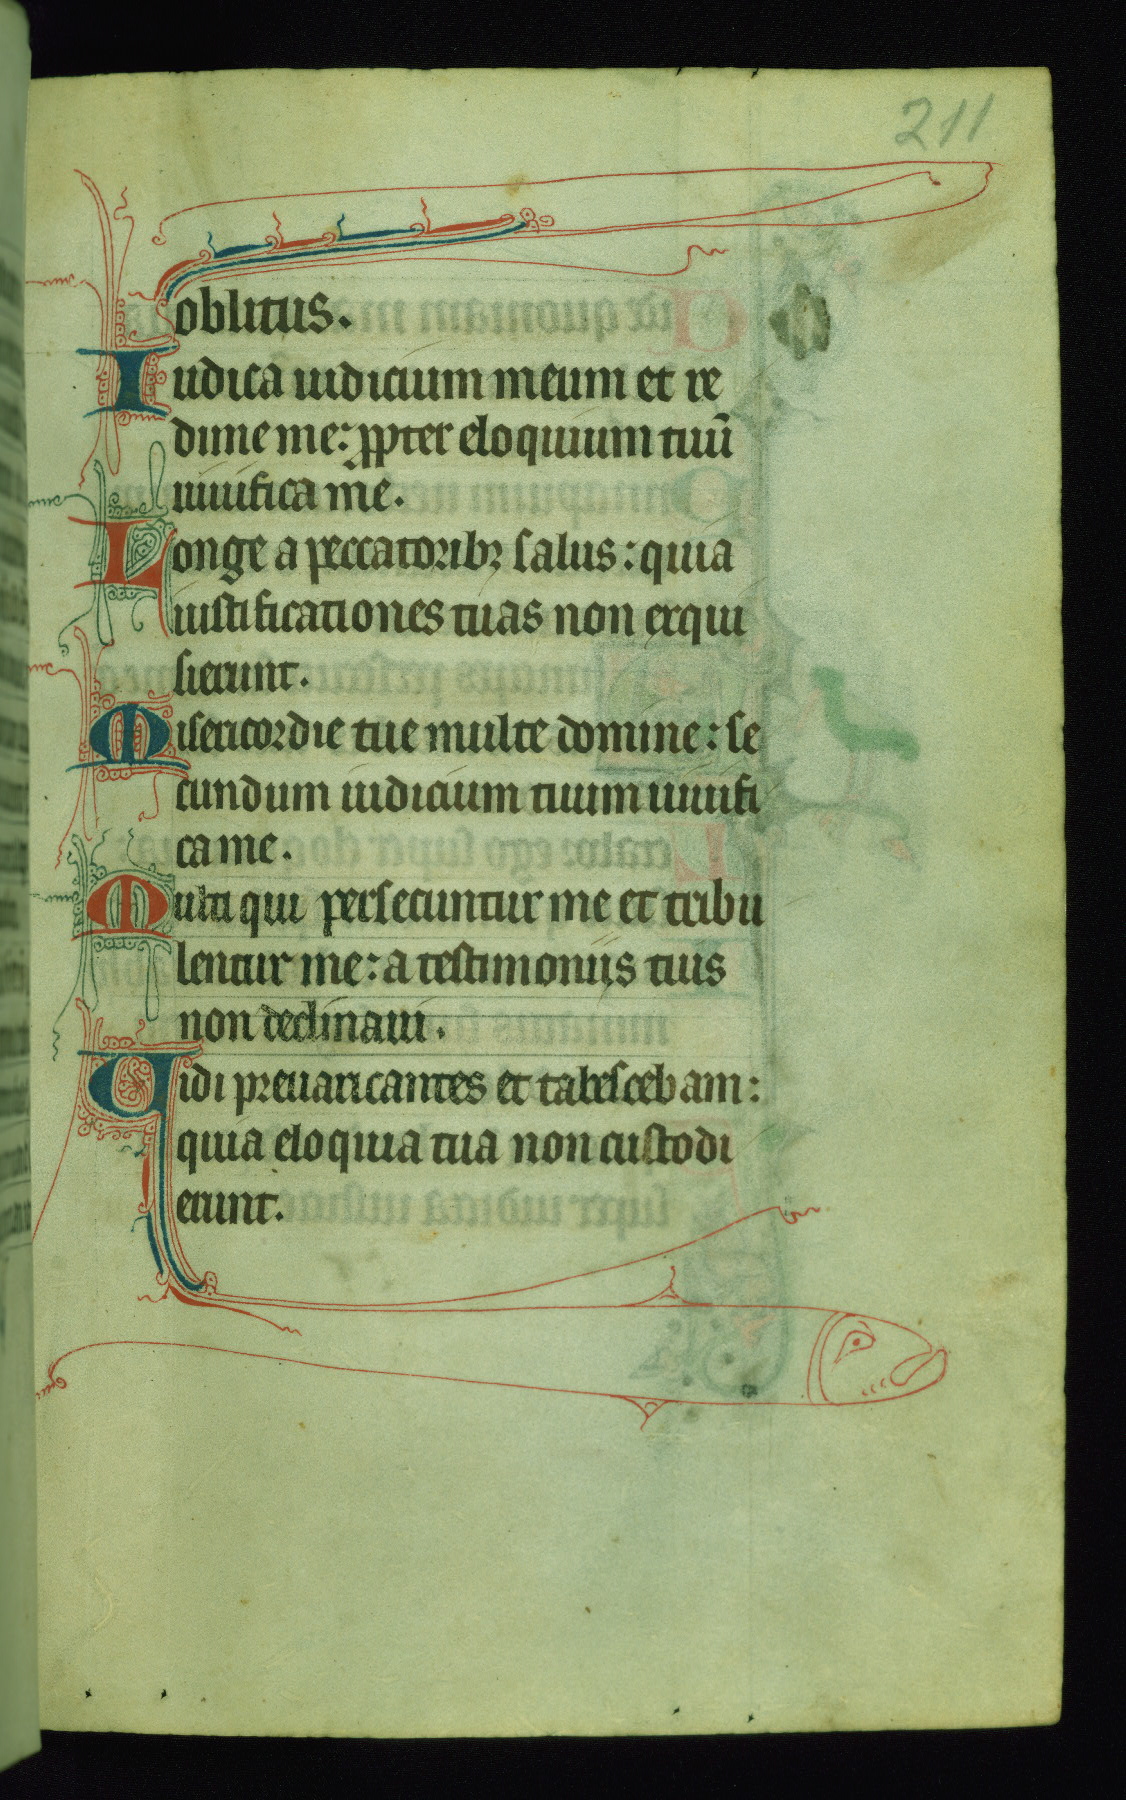 211
oblitus.
Iudica iudicium meum et re
dime me: ppter eloquium tuū
uiuifica me.
Longe a peccatoribꝫ salus: quia
iustificationes tuas non exqui
sierunt.
Misericordie tue multe domine: se
cundum iudicium tuum uiuifi
ca me.
Multi qui persecuntur me et tribu
lentur me: a testimoniis tuis
non declinaui.
Uidi preuaricantes et tabescebam:
quia eloquia tua non custodi
erunt.